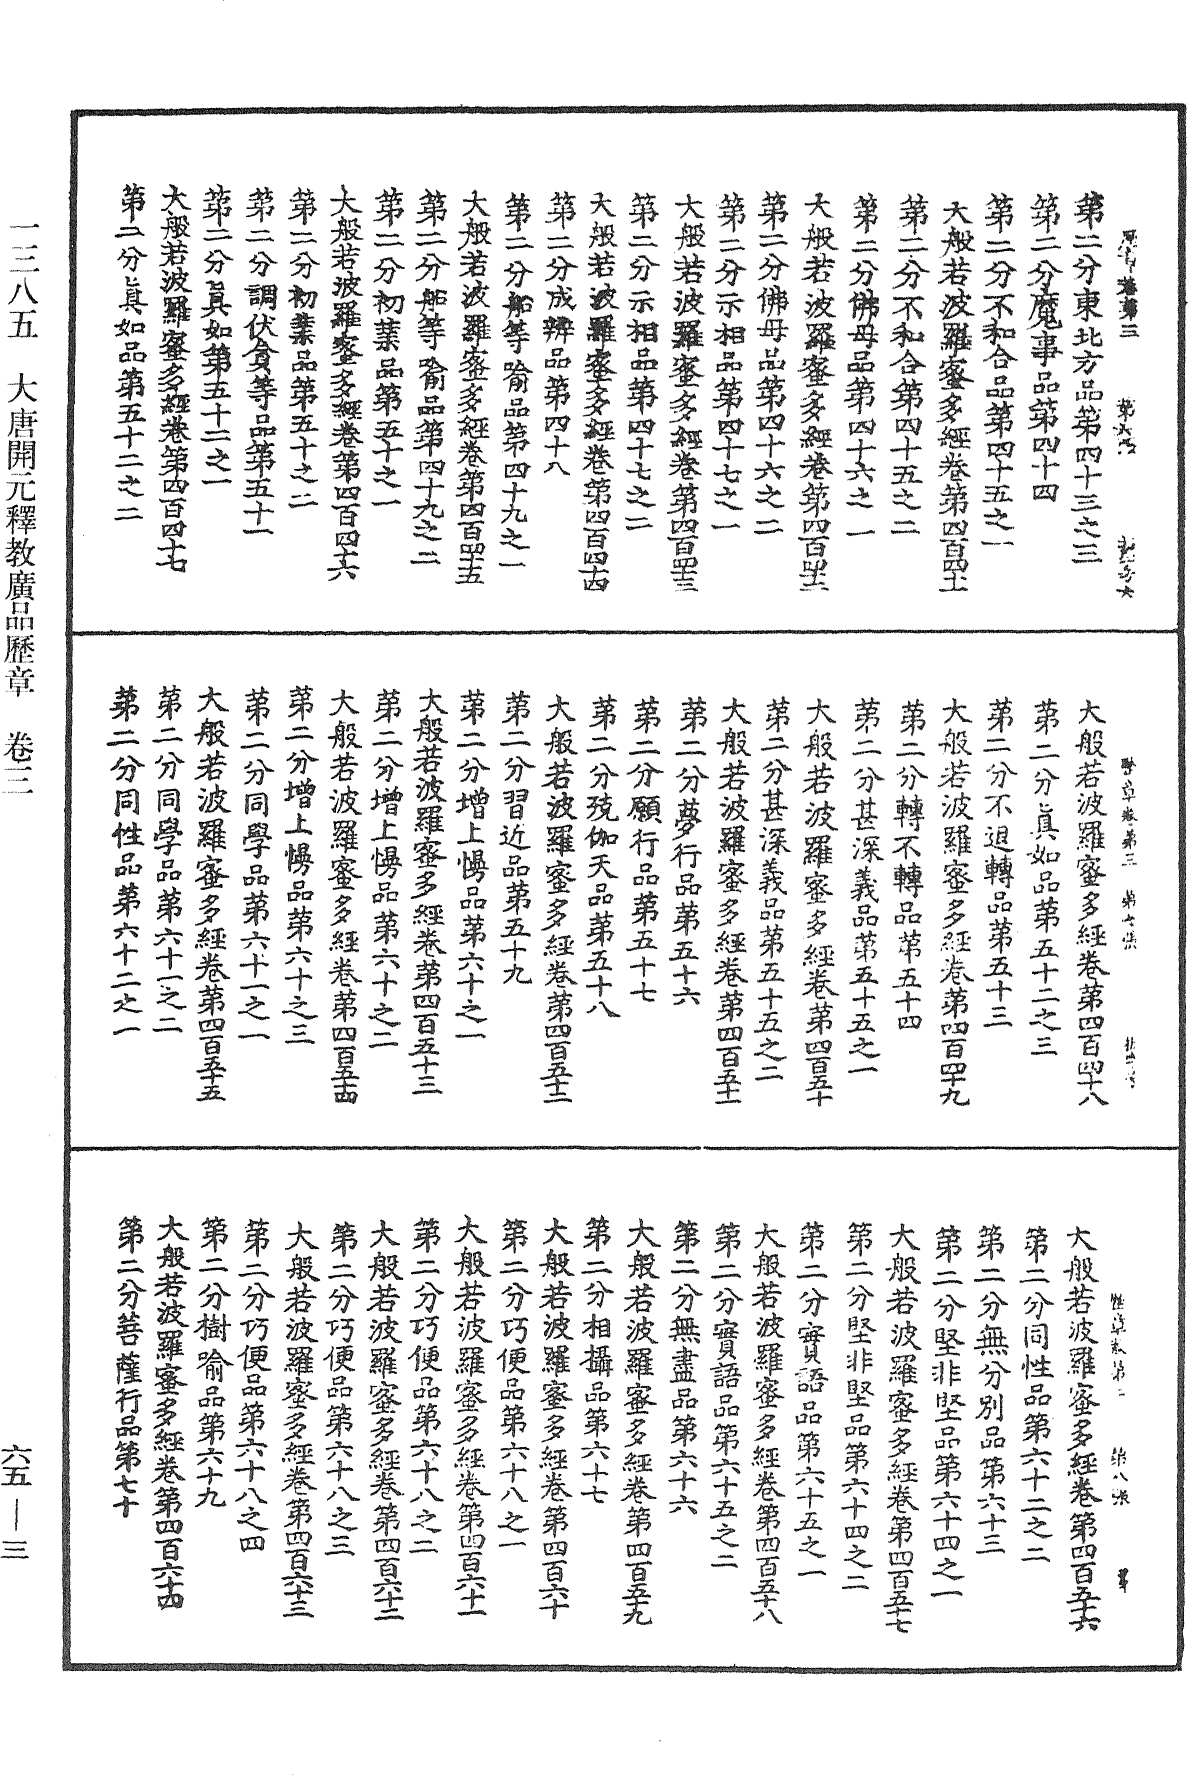 第二分東北方品第四十三之三
第二分魔事品第四十四
第二分不和合品第四十五之一
大般若波羅蜜多經卷第四百四十一
第二分不和合第四十五之二
第二分佛母品第四十六之一
大般若波羅蜜多經卷第四百四十二
第二分佛母品第四十六之二
第二分示相品第四十七之一
大般若波羅蜜多經卷第四百四十三
第二分示相品第四十七之二
大般若波羅蜜多經卷第四百四十四
第二分成辨品第四十八
第二分船等喻品第四十九之一
大般若波羅蜜多經卷第四百四十五
第二分船等喻品第四十九之二
第二分初業品第五十之一
大般若波羅蜜多經卷第四百四十六
第二分初業品第五十之二
第二分調伏貪等品第五十一
第二分眞如第五十二之一
大般若波羅蜜多經卷第四百四十七
第二分眞如品第五十二之二
大般若波羅蜜多經卷第四百四十八
第二分眞如品第五十二之三
第二分不退轉品第五十三
大般若波羅蜜多經卷第四百四十九
第二分轉不轉品第五十四
第二分甚深義品第五十五之一
大般若波羅蜜多經卷第四百五十
第二分甚深義品第五十五之二
大般若波羅蜜多經卷第四百五十一
第二分夢行品第五十六
第二分願行品第五十七
第二分殑伽天品第五十八
大般若波羅蜜多經卷第四百五十二
第二分習近品第五十九
第二分增上慢品第六十之一
大般若波羅蜜多經卷第四百五十三
第二分增上慢品第六十之二
大般若波羅蜜多經卷第四百五十四
第二分增上慢品第六十之三
第二分同學品第六十一之一
大般若波羅蜜多經卷第四百五十五
第二分同學品第六十一之二
第二分同性品第六十二之一
大般若波羅蜜多經卷第四百五十六
第二分同性品第六十二之二
第二分無分別品第六十三
第二分堅非堅品第六十四之一
大般若波羅蜜多經卷第四百五十七
第二分堅非堅品第六十四之二
第二分實語品第六十五之一
大般若波羅蜜多經卷第四百五十八
第二分實語品第六十五之二
第二分無盡品第六十六
大般若波羅蜜多經卷第四百五十九
第二分相攝品第六十七
大般若波羅蜜多經卷第四百六十
第二分巧便品第六十八之一
大般若波羅蜜多經卷第四百六十一
第二分巧便品第六十八之二
大般若波羅蜜多經卷第四百六十二
第二分巧便品第六十八之三
大般若波羅蜜多經卷第四百六十三
第二分巧便品第六十八之四
第二分樹喻品第六十九
大般若波羅蜜多經卷第四百六十四
第二分菩薩行品第七十
一三八五　大唐開元釋教廣品歷章　卷三
六五—三